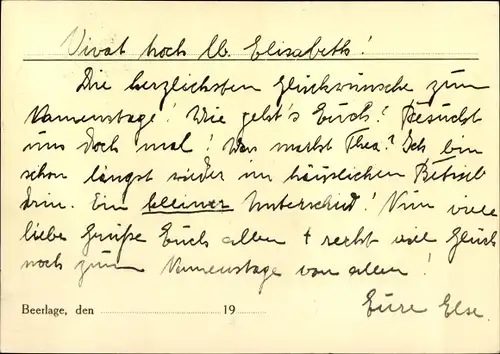 Vivat hoch lb. Elisabeth!
Die herzlichsten Glückwünsche zum
Namenstage! Wie geht's Euch? Besucht
uns doch mal! Was macht Thea? Ich bin
schon längst wieder im häuslichen Betrieb
drin. Ein kleiner Unterschied! Nun viele
liebe Grüße Euch allen + recht viel Glück
noch zum Namenstage von allen!
Eure Else
Beerlage, den 19